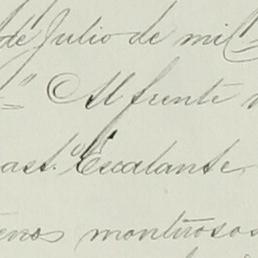 de Julio de mil
Al frente
ast.º Escalante
enos montuosos